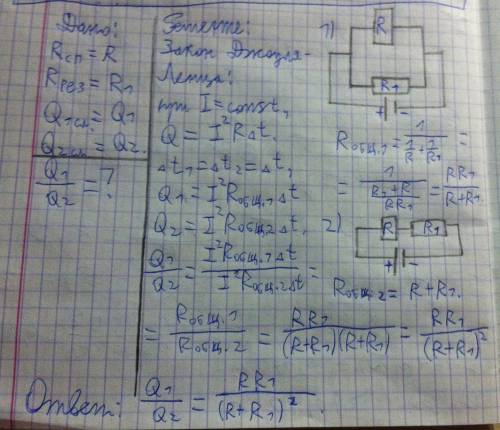 Дано:
Rсп = R
Rрез = R1
Q1сп. = Q1
Q2сп. = Q2.
Q1/Q2 = ?
Решение:
Закон Джоуля-
Ленца:
при I = const,
Q = I²RΔt.
Δt1 = Δt2 = Δt,
Q1 = I²Rобщ.1Δt
Q2 = I²Rобщ.2Δt.
Q1/Q2 = I²Rобщ.1Δt / I²Rобщ.2Δt =
= Rобщ.1/Rобщ.2 = RR1/(R+R1)(R+R1) = RR1/(R+R1)²
1)
R
R1
+ -
Rобщ.1 = 1/(1/R + 1/R1) =
= 1/((R1+R)/RR1) = RR1/(R+R1)
2)
R R1
+ -
Rобщ.2 = R+R1.
Ответ: Q1/Q2 = RR1/(R+R1)².